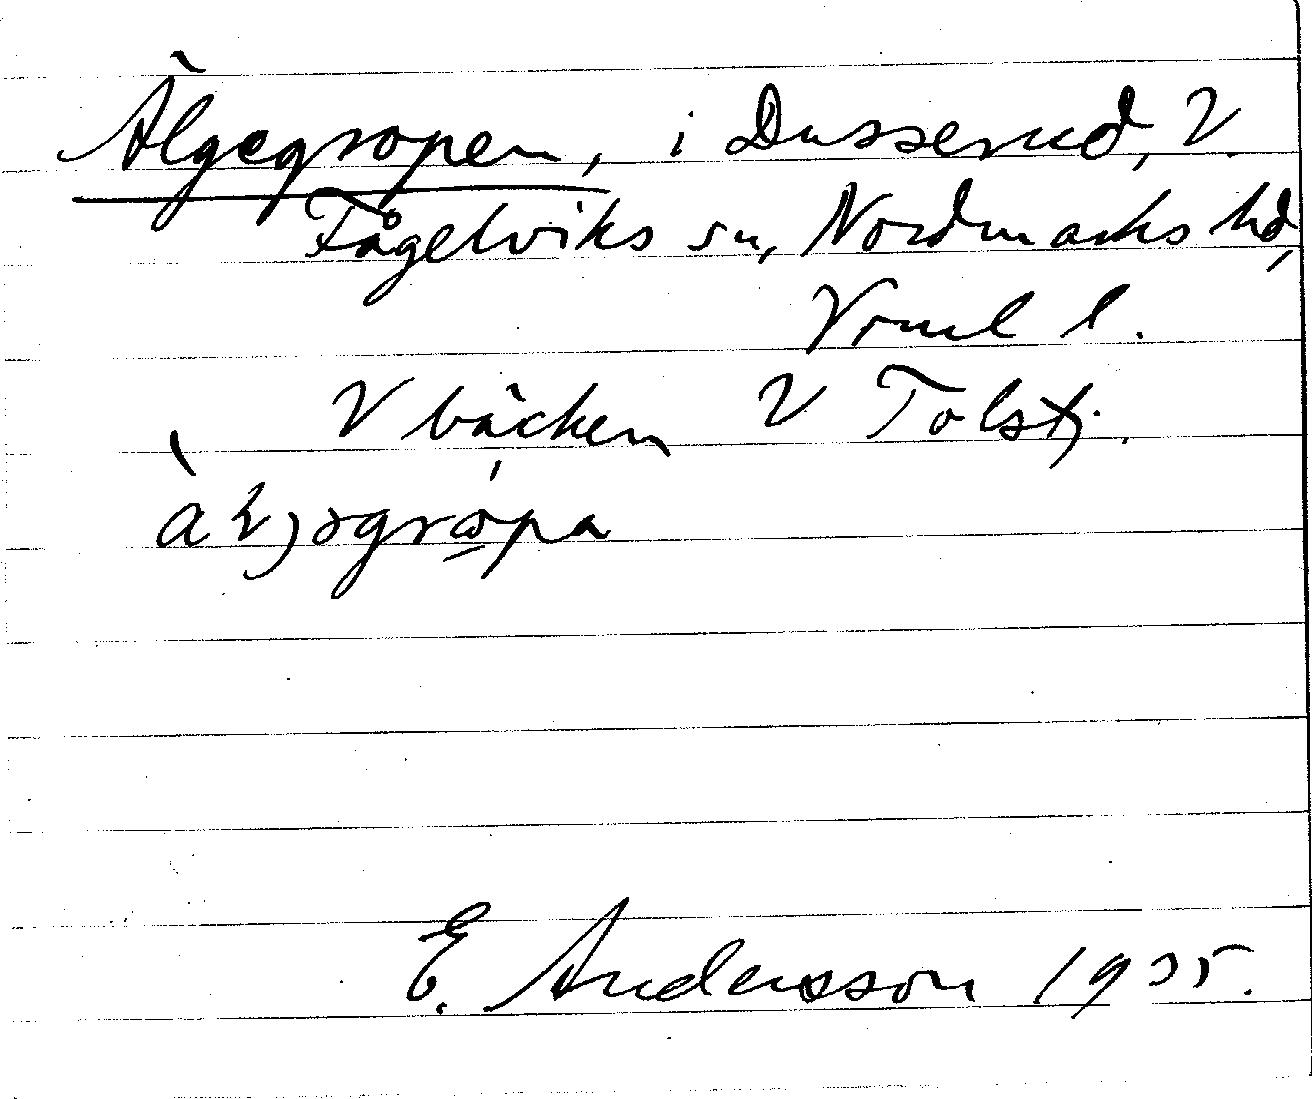 Älgegropen, i Dusserud, V.
Fågelviks sn, Nordmarks hd,
Vrml l.
V bäcken V Tolstj.
E. Andersson 1935.